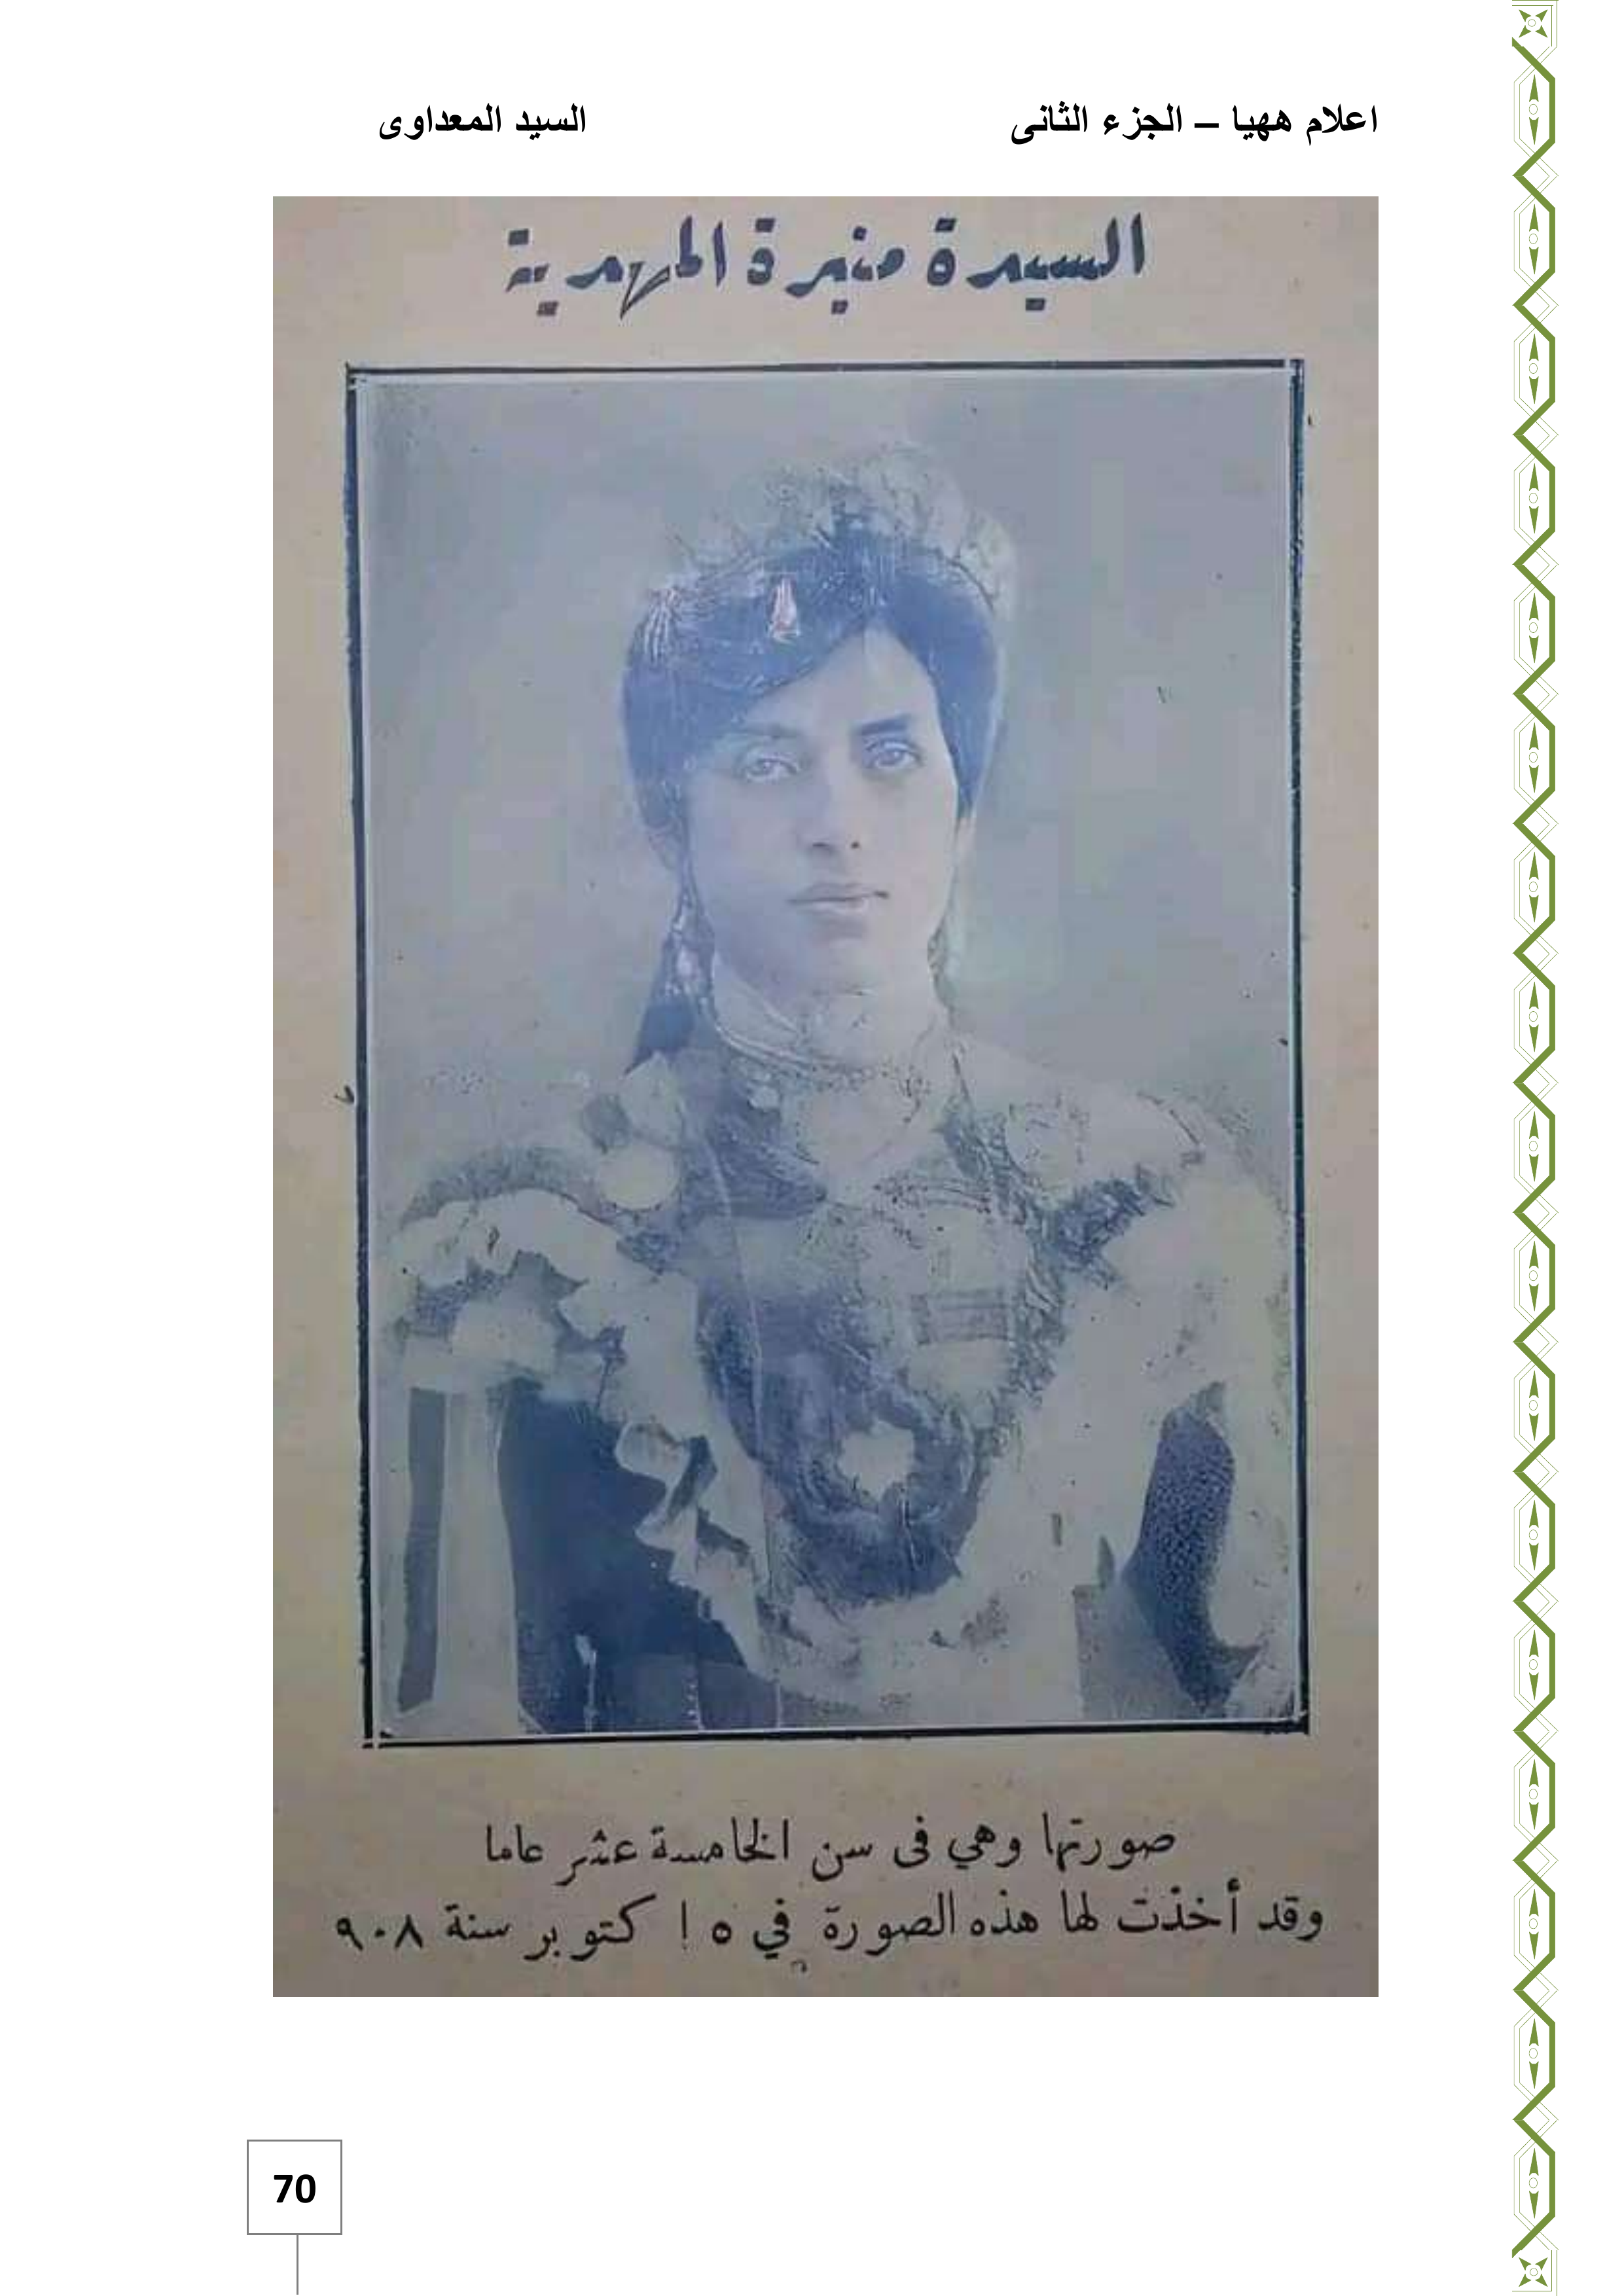 اعلام ههيا – الجزء الثانى
السيد المعداوى
السيدة منيرة المهدية
صورتها وهي فى سن الخامسة عشر عاما
وقد أخذت لها هذه الصورة في ٥ اكتوبر سنة ٩٠٨
70